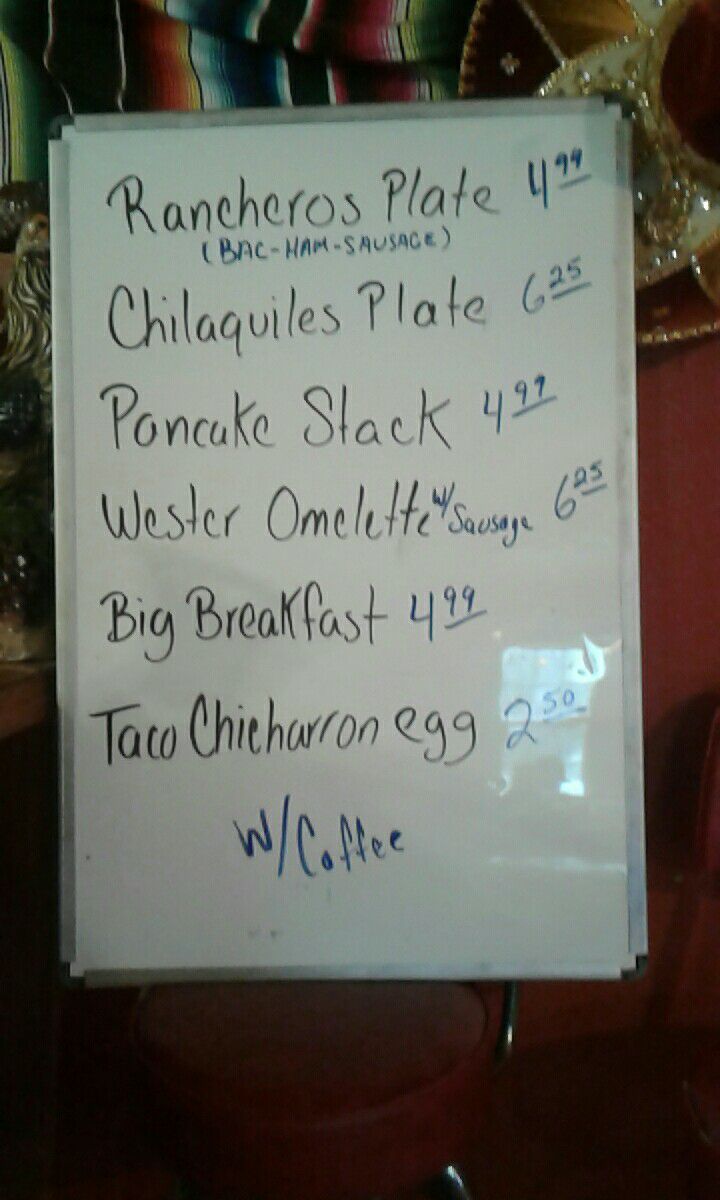 Rancheros Plate 4 99
(BAC-HAM-SAUSAGE)
Chilaquiles Plate 6 25
Pancake Stack 4 99
Wester Omelette w/ Sausage 6 25
Big Breakfast 4 99
Taco Chicharron egg 2 50
W/Coffee